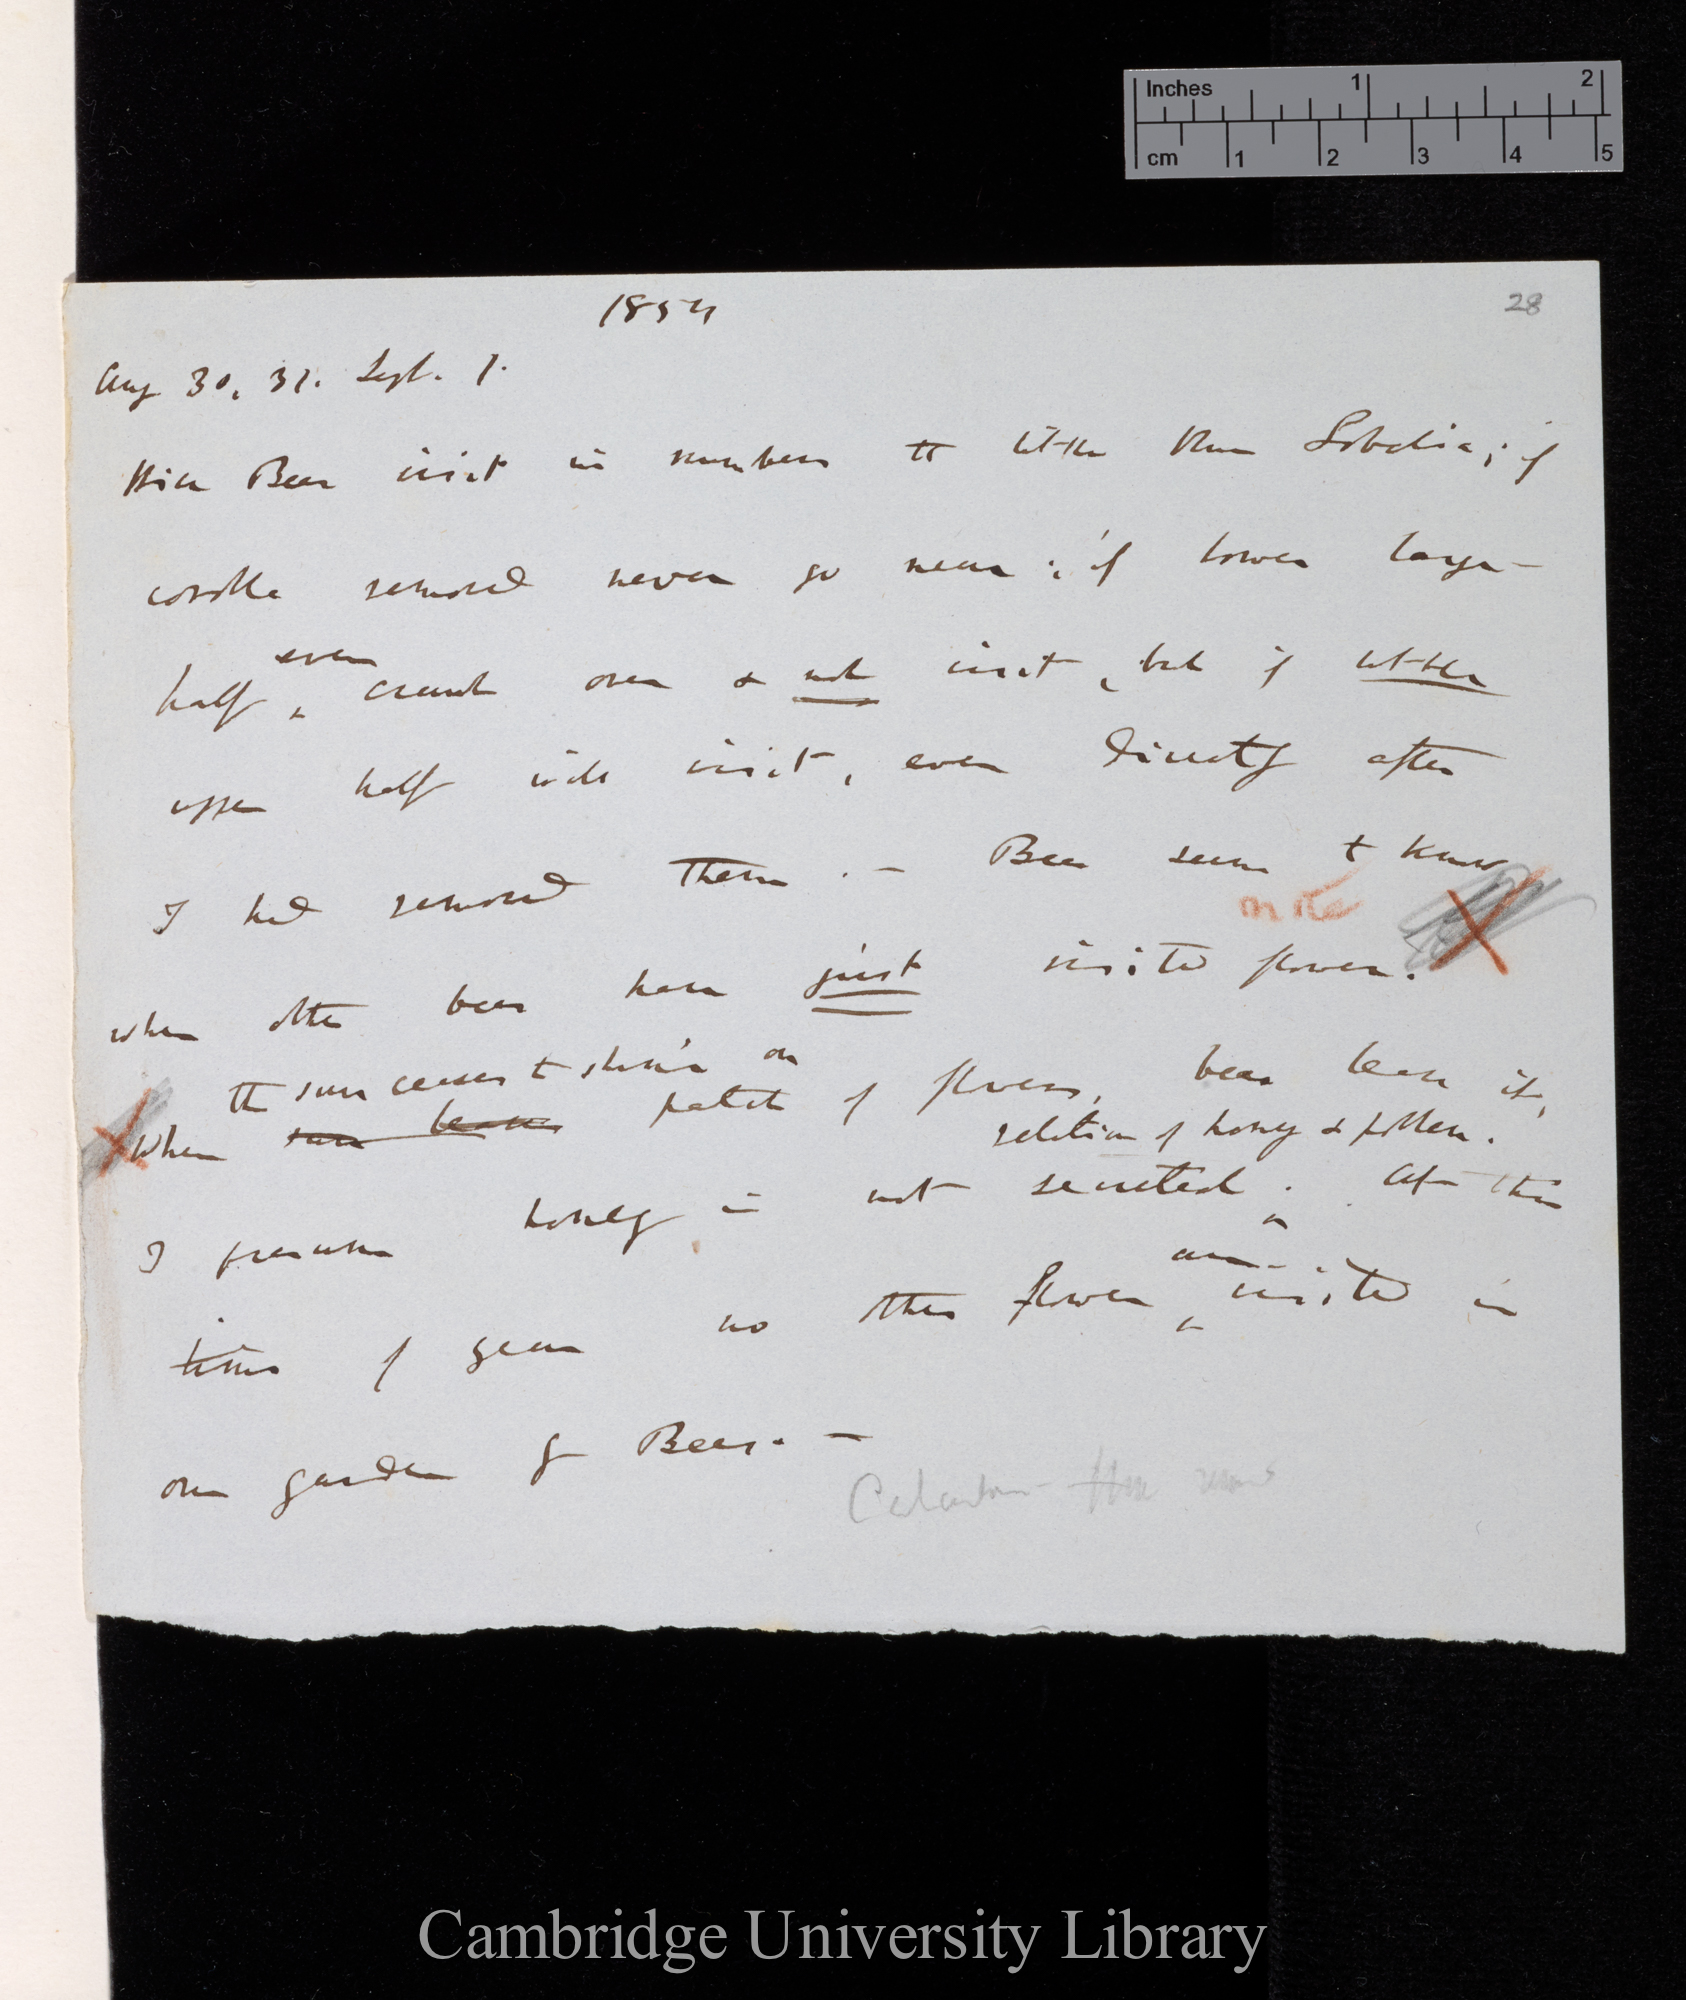 1854
28
Aug 30, 31. Sept. 1.
Hive Bees visit in numbers the little blue Lobelia; if
corolla removed never go near; if lower large
half, even crawl over & not visit, but if little
upper half will visit, even directly after
I had removed them. — Bees seem to know
note
when other bees have just visited flower.
When sun leaves the sun ceases to shine on patch of flowers, bees leave it,
I presume honey is not secreted. relation of honey & pollen. At this
time of year no other flower are visited in
our garden by Bees. —
Inches 1 2
cm 1 2 3 4 5
Cambridge University Library